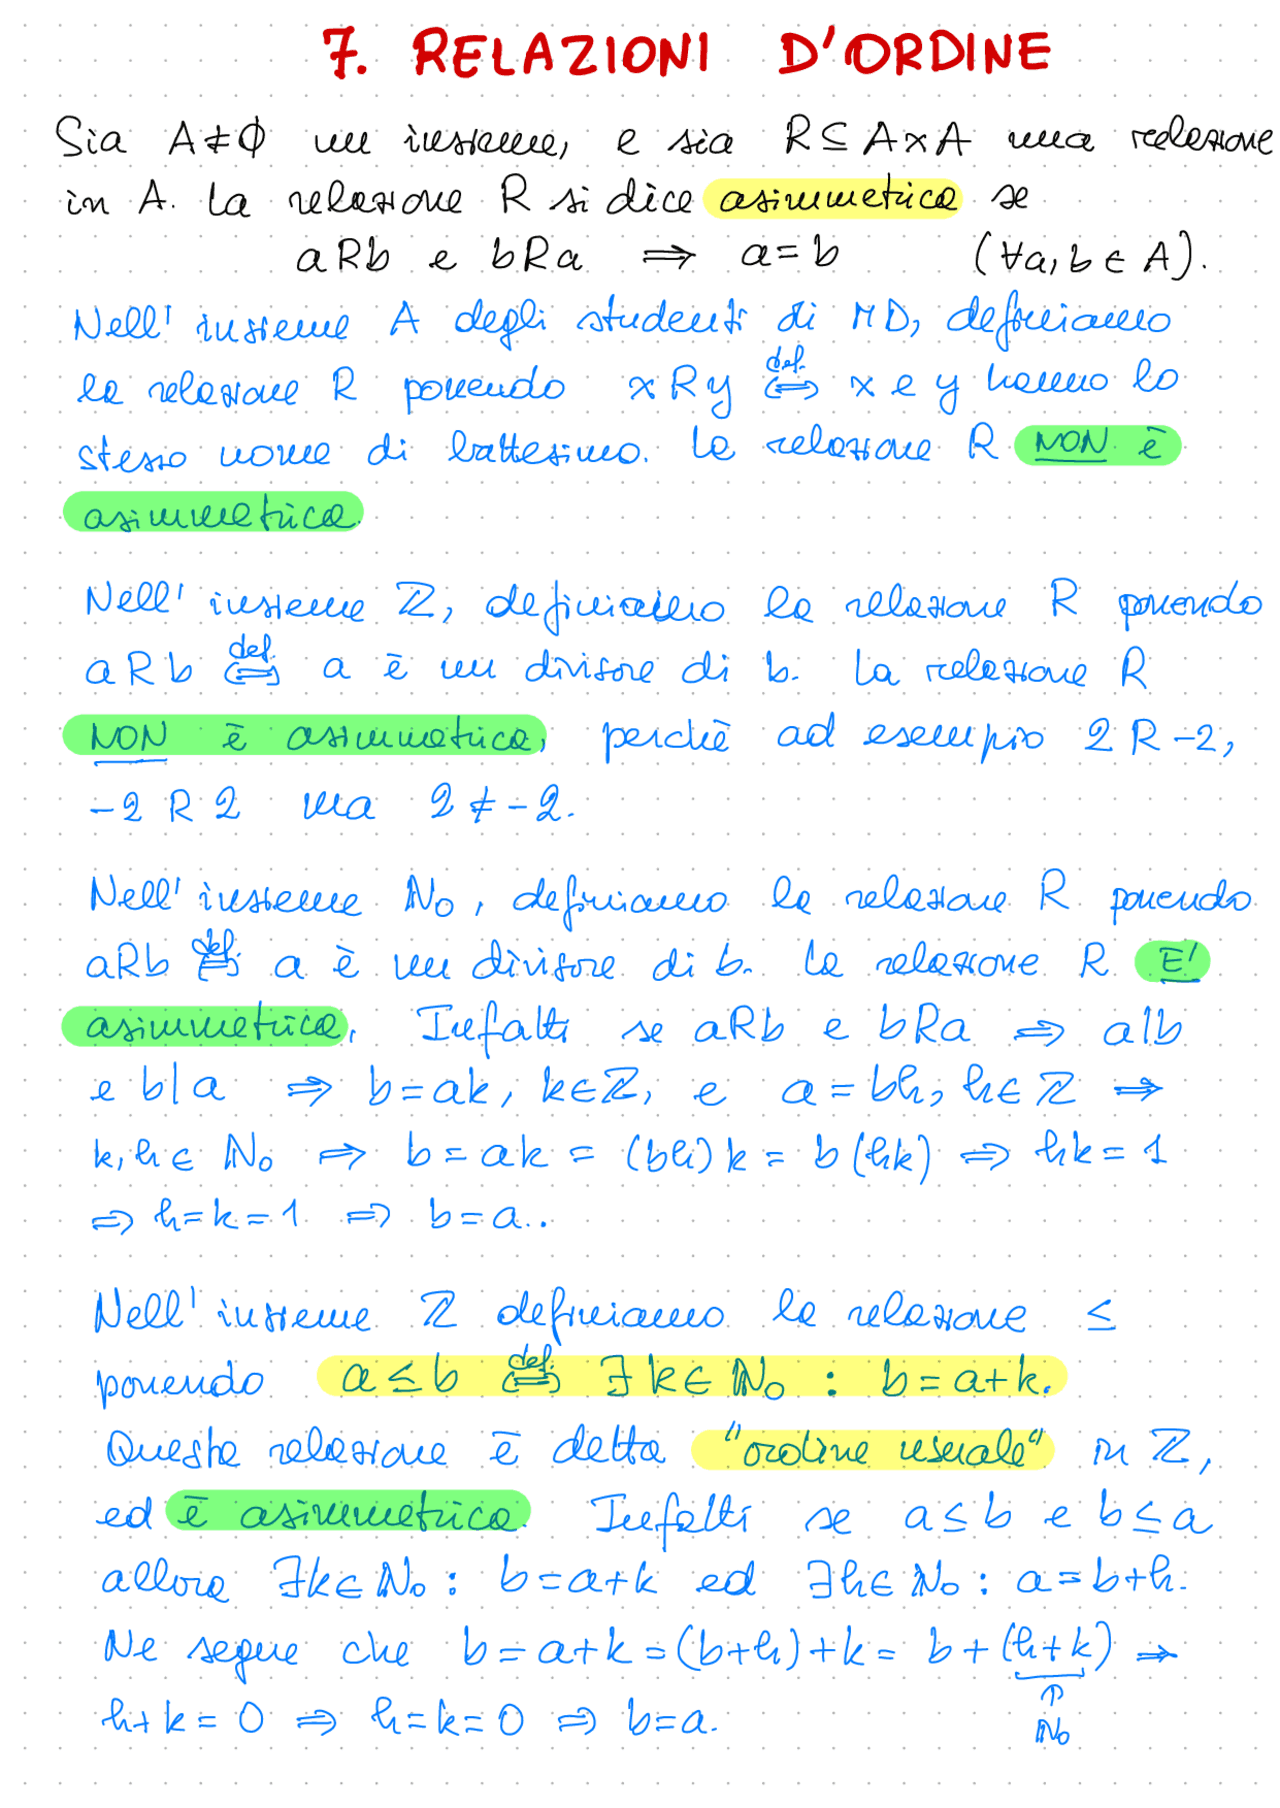 7. RELAZIONI D'ORDINE
Sia A≠∅ un insieme, e sia R⊆A×A una relazione
in A. La relazione R si dice asimmetrica se
aRb e bRa ⟹ a=b (∀a,b∈A).
Nell'insieme A degli studenti di MD, definiamo
la relazione R ponendo xRy ⟺(def.) x e y hanno lo
stesso nome di battesimo. La relazione R NON è
asimmetrica.
Nell'insieme ℤ, definiamo la relazione R ponendo
aRb ⟺(def.) a è un divisore di b. La relazione R
NON è asimmetrica, perchè ad esempio 2 R -2,
-2 R 2 ma 2≠-2.
Nell'insieme ℕ₀, definiamo la relazione R ponendo
aRb ⟺(def.) a è un divisore di b. La relazione R E'
asimmetrica. Infatti se aRb e bRa ⟹ a|b
e b|a ⟹ b=ak, k∈ℤ, e a=bh, h∈ℤ ⟹
k,h∈ℕ₀ ⟹ b=ak=(bh)k=b(hk) ⟹ hk=1
⟹ h=k=1 ⟹ b=a..
Nell'insieme ℤ definiamo la relazione ≤
ponendo a≤b ⟺(def.) ∃k∈ℕ₀ : b=a+k.
Questa relazione è detta "ordine usuale" in ℤ,
ed è asimmetrica. Infatti se a≤b e b≤a
allora ∃k∈ℕ₀ : b=a+k ed ∃h∈ℕ₀ : a=b+h.
Ne segue che b=a+k=(b+h)+k=b+(h+k) ⟹
↑
h+k=0 ⟹ h=k=0 ⟹ b=a. ℕ₀